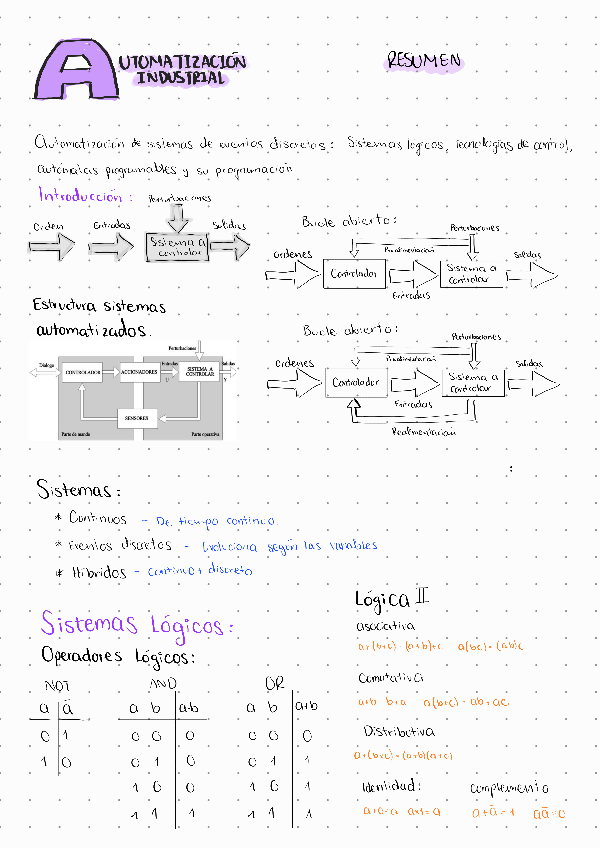 AUTOMATIZACIÓN
INDUSTRIAL
RESUMEN
Automatización de sistemas de eventos discretos: Sistemas lógicos, tecnologías de control,
autómatas programables y su programación
Introducción:
Perturbaciones
Orden
Entradas
Salidas
Sistema a
controlar
Bucle abierto:
Perturbaciones
Prealimentación
ordenes
Salidas
Controlador
Sistema a
controlar
Entradas
Estructura sistemas
automatizados.
Perturbaciones
Diálogo
Entradas
Salidas
CONTROLADOR
ACCIONADORES
SISTEMA A
CONTROLAR
U
Y
SENSORES
Parte de mando
Parte operativa
Bucle abierto:
Perturbaciones
Prealimentación
ordenes
Salidas
Controlador
Sistema a
controlar
Entradas
Realimentación
:
Sistemas:
* Continuos - De tiempo continuo.
* Eventos discretos - Evoluciona según las variables
* Híbridos - continuo + discreto
Sistemas Lógicos:
Operadores Lógicos:
NOT
a ā
0 1
1 0
AND
a b a·b
0 0 0
0 1 0
1 0 0
1 1 1
OR
a b a+b
0 0 0
0 1 1
1 0 1
1 1 1
Lógica II
asociativa
a+(b+c) = (a+b)+c a(bc) = (ab)c
Comutativa
a+b b+a a(b+c) = ab+ac
Distributiva
a+(b+c) = (a+b)(a+c)
Identidad:
a+0=a a·1=a
complemento
a+ā=1 aā=0